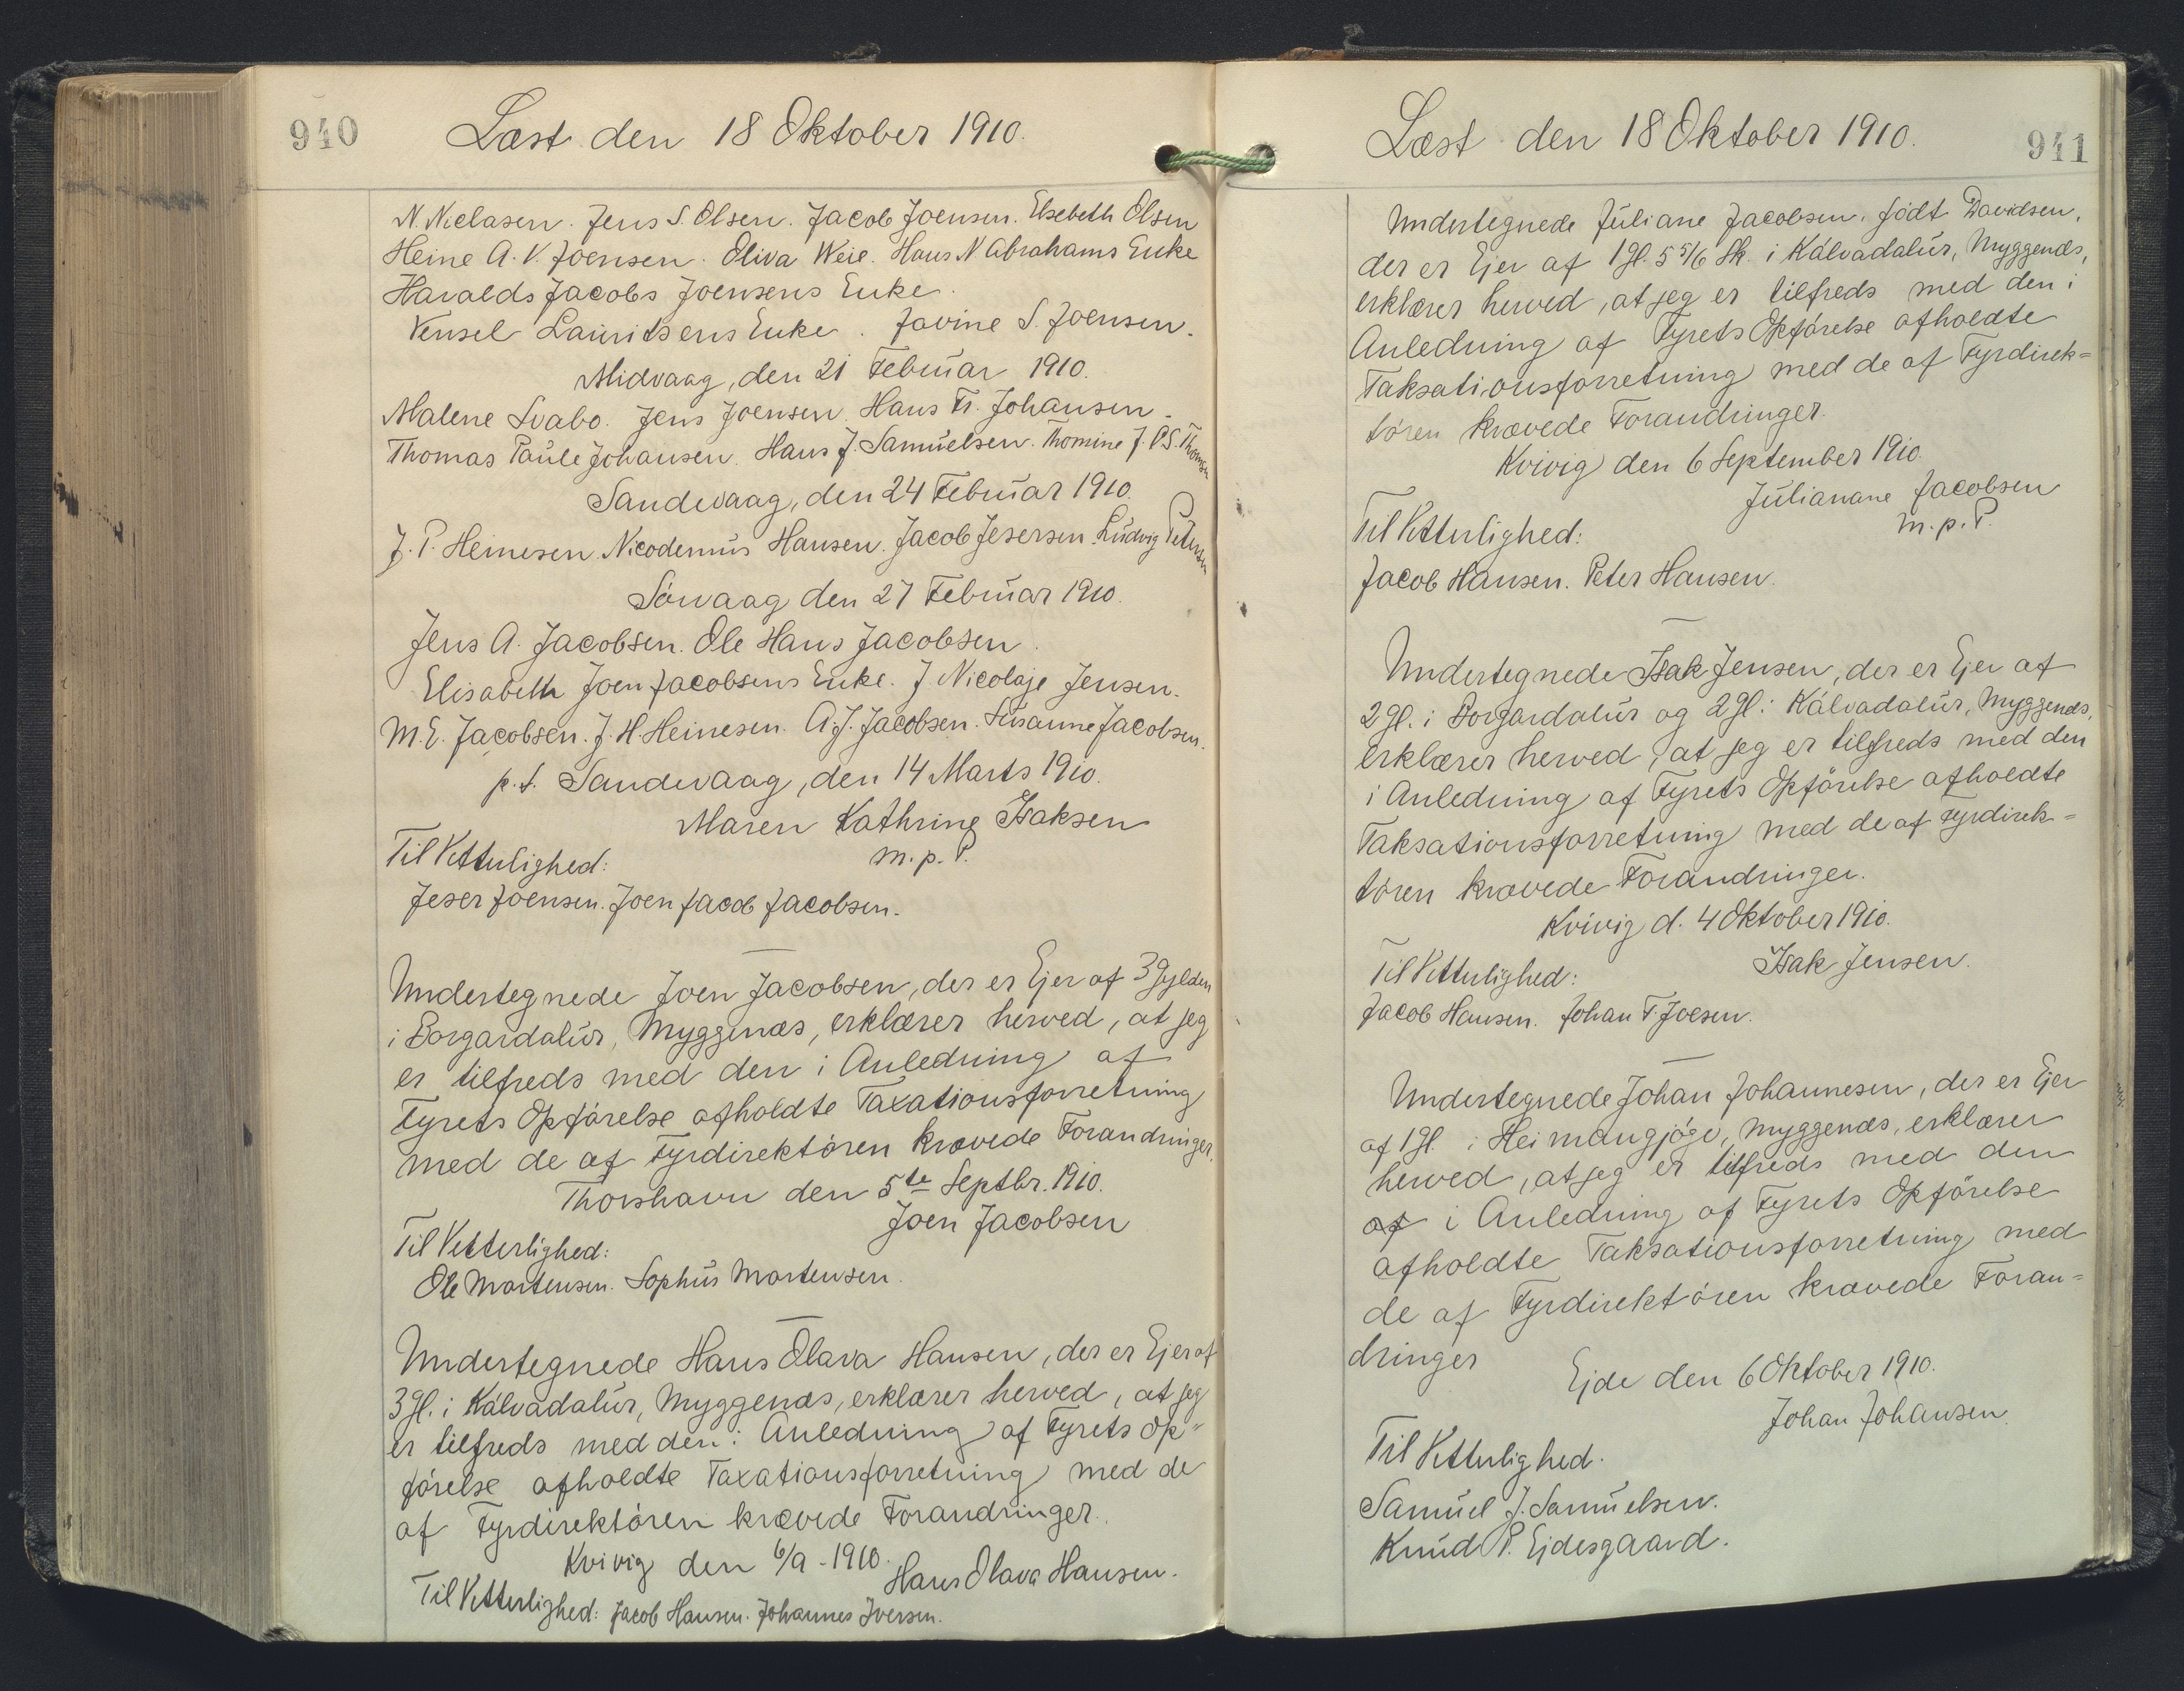 940
Læst den 18 Oktober 1910.
N. Niclasen. Jens S. Olsen. Jacob Joensen. Elsebeth Olsen
Heine A. V. Joensen. Oliva Weie. Hans N. Abrahams Enke
Haralds Jacobs Joensens Enke.
Vensel Lauritsens Enke. Javine S. Joensen.
Midvaag, den 21 Februar 1910.
Malene Svabo. Jens Joensen. Hans Fr. Johansen.
Thomas Paule Johansen. Hans J. Samuelsen. Thomine J. P. S. Thomsen
Sandevaag, den 24 Februar 1910.
J. P. Heinesen. Nicodemus Hansen. Jacob Jesersen. Ludvig Petersen
Sörvaag den 27 Februar 1910.
Jens A. Jacobsen. Ole Hans Jacobsen.
Elisabeth Joen Jacobsens Enke. J. Nicolaje Jensen.
M. E. Jacobsen. J. H. Heinesen. A. J. Jacobsen. Susanne Jacobsen.
p. t. Sandevaag, den 14 Marts 1910.
Maren Kathrine Isaksen
m. p. P.
Til Vitterlighed:
Jeser Joensen. Joen Jacob Jacobsen.
Undertegnede Joen Jacobsen, der er Ejer af 3 Gylden
i Borgardalur, Myggenæs, erklærer herved, at jeg
er tilfreds med den i Anledning af
Fyrets Opförelse afholdte Taxationsforretning
med de af Fyrdirektören krævede Forandringer.
Thorshavn den 5te Septbr. 1910.
Joen Jacobsen
Til Vitterlighed:
Ole Mortensen. Sophus Mortensen.
Undertegnede Hans Olava Hansen, der er Ejer af
3 Gl. i Kálvadalur, Myggenæs, erklærer herved, at jeg
er tilfreds med den i Anledning af Fyrets Op-
förelse afholdte Taxationsforretning med de
af Fyrdirektören krævede Forandringer.
Kvivig den 6/9 - 1910.
Hans Olava Hansen.
Til Vitterlighed: Jacob Hansen. Johannes Iversen.
Læst den 18 Oktober 1910.
941
Undertegnede Juliane Jacobsen, födt Davidsen,
der er Ejer af 1 Gl. 5 5/6 Sk. i Kálvadalur, Myggenæs,
erklærer herved, at jeg er tilfreds med den i
Anledning af Fyrets Opförelse afholdte
Taksationsforretning med de af Fyrdirek=
tören krævede Forandringer.
Kvivig den 6 September 1910.
Julianane Jacobsen
m. p. P.
Til Vitterlighed:
Jacob Hansen. Peter Hansen.
Undertegnede Isak Jensen, der er Ejer af
2 Gl. i Borgardalur og 2 Gl. i Kálvadalur, Myggenæs,
erklærer herved, at jeg er tilfreds med den
i Anledning af Fyrets Opförelse afholdte
Taksationsforretning med de af Fyrdirek=
tören krævede Forandringer.
Kvivig d. 4 Oktober 1910.
Isak Jensen.
Til Vitterlighed:
Jacob Hansen. Johan F. Joesen.
Undertegnede Johan Johannesen, der er Ejer
af 1 Gl. i Heimangjógv, Myggenæs, erklærer
herved, at jeg er tilfreds med den
af i Anledning af Fyrets Opförelse
afholdte Taksationsforretning med
de af Fyrdirektören krævede Foran=
dringer
Ejde den 6 Oktober 1910.
Johan Johansen.
Til Vitterlighed.
Samuel J. Samuelsen.
Knud P. Ejdesgaard.